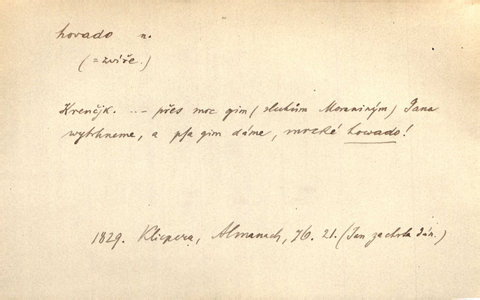 hovado n.
(= zvíře.)
Krenčjk. … přes moc gim (sluhům Moraniným) Jana
wytrhneme, a psa gim dáme, mrzké howado!
1829. Klicpera, Almanach, 76. 21. (Jan za chrta dán.)